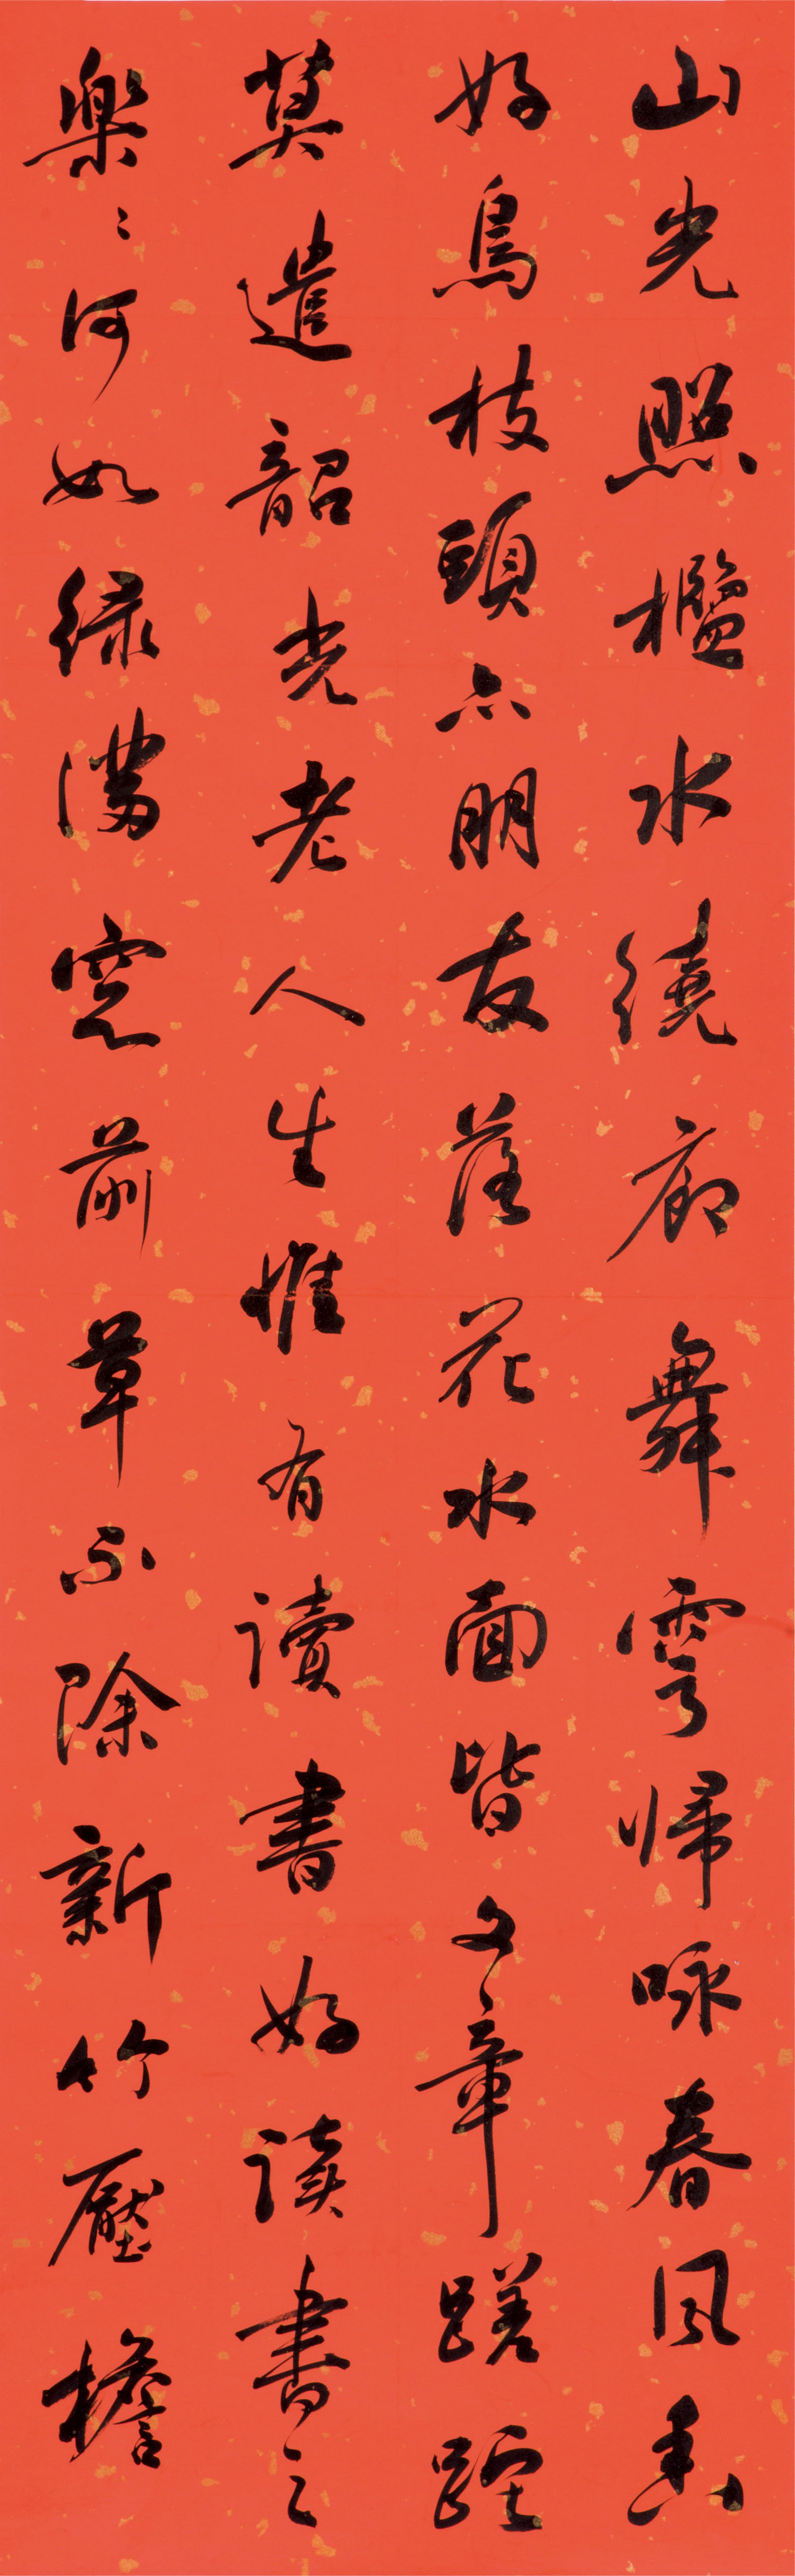 山光照檻水繞廊舞雩帰咏春風香
好鳥枝頭亦朋友落花水面皆文章蹉跎
莫遣韶光老人生惟有讀書好讀書之
樂〻何如緑滿窓前草不除新竹壓檐